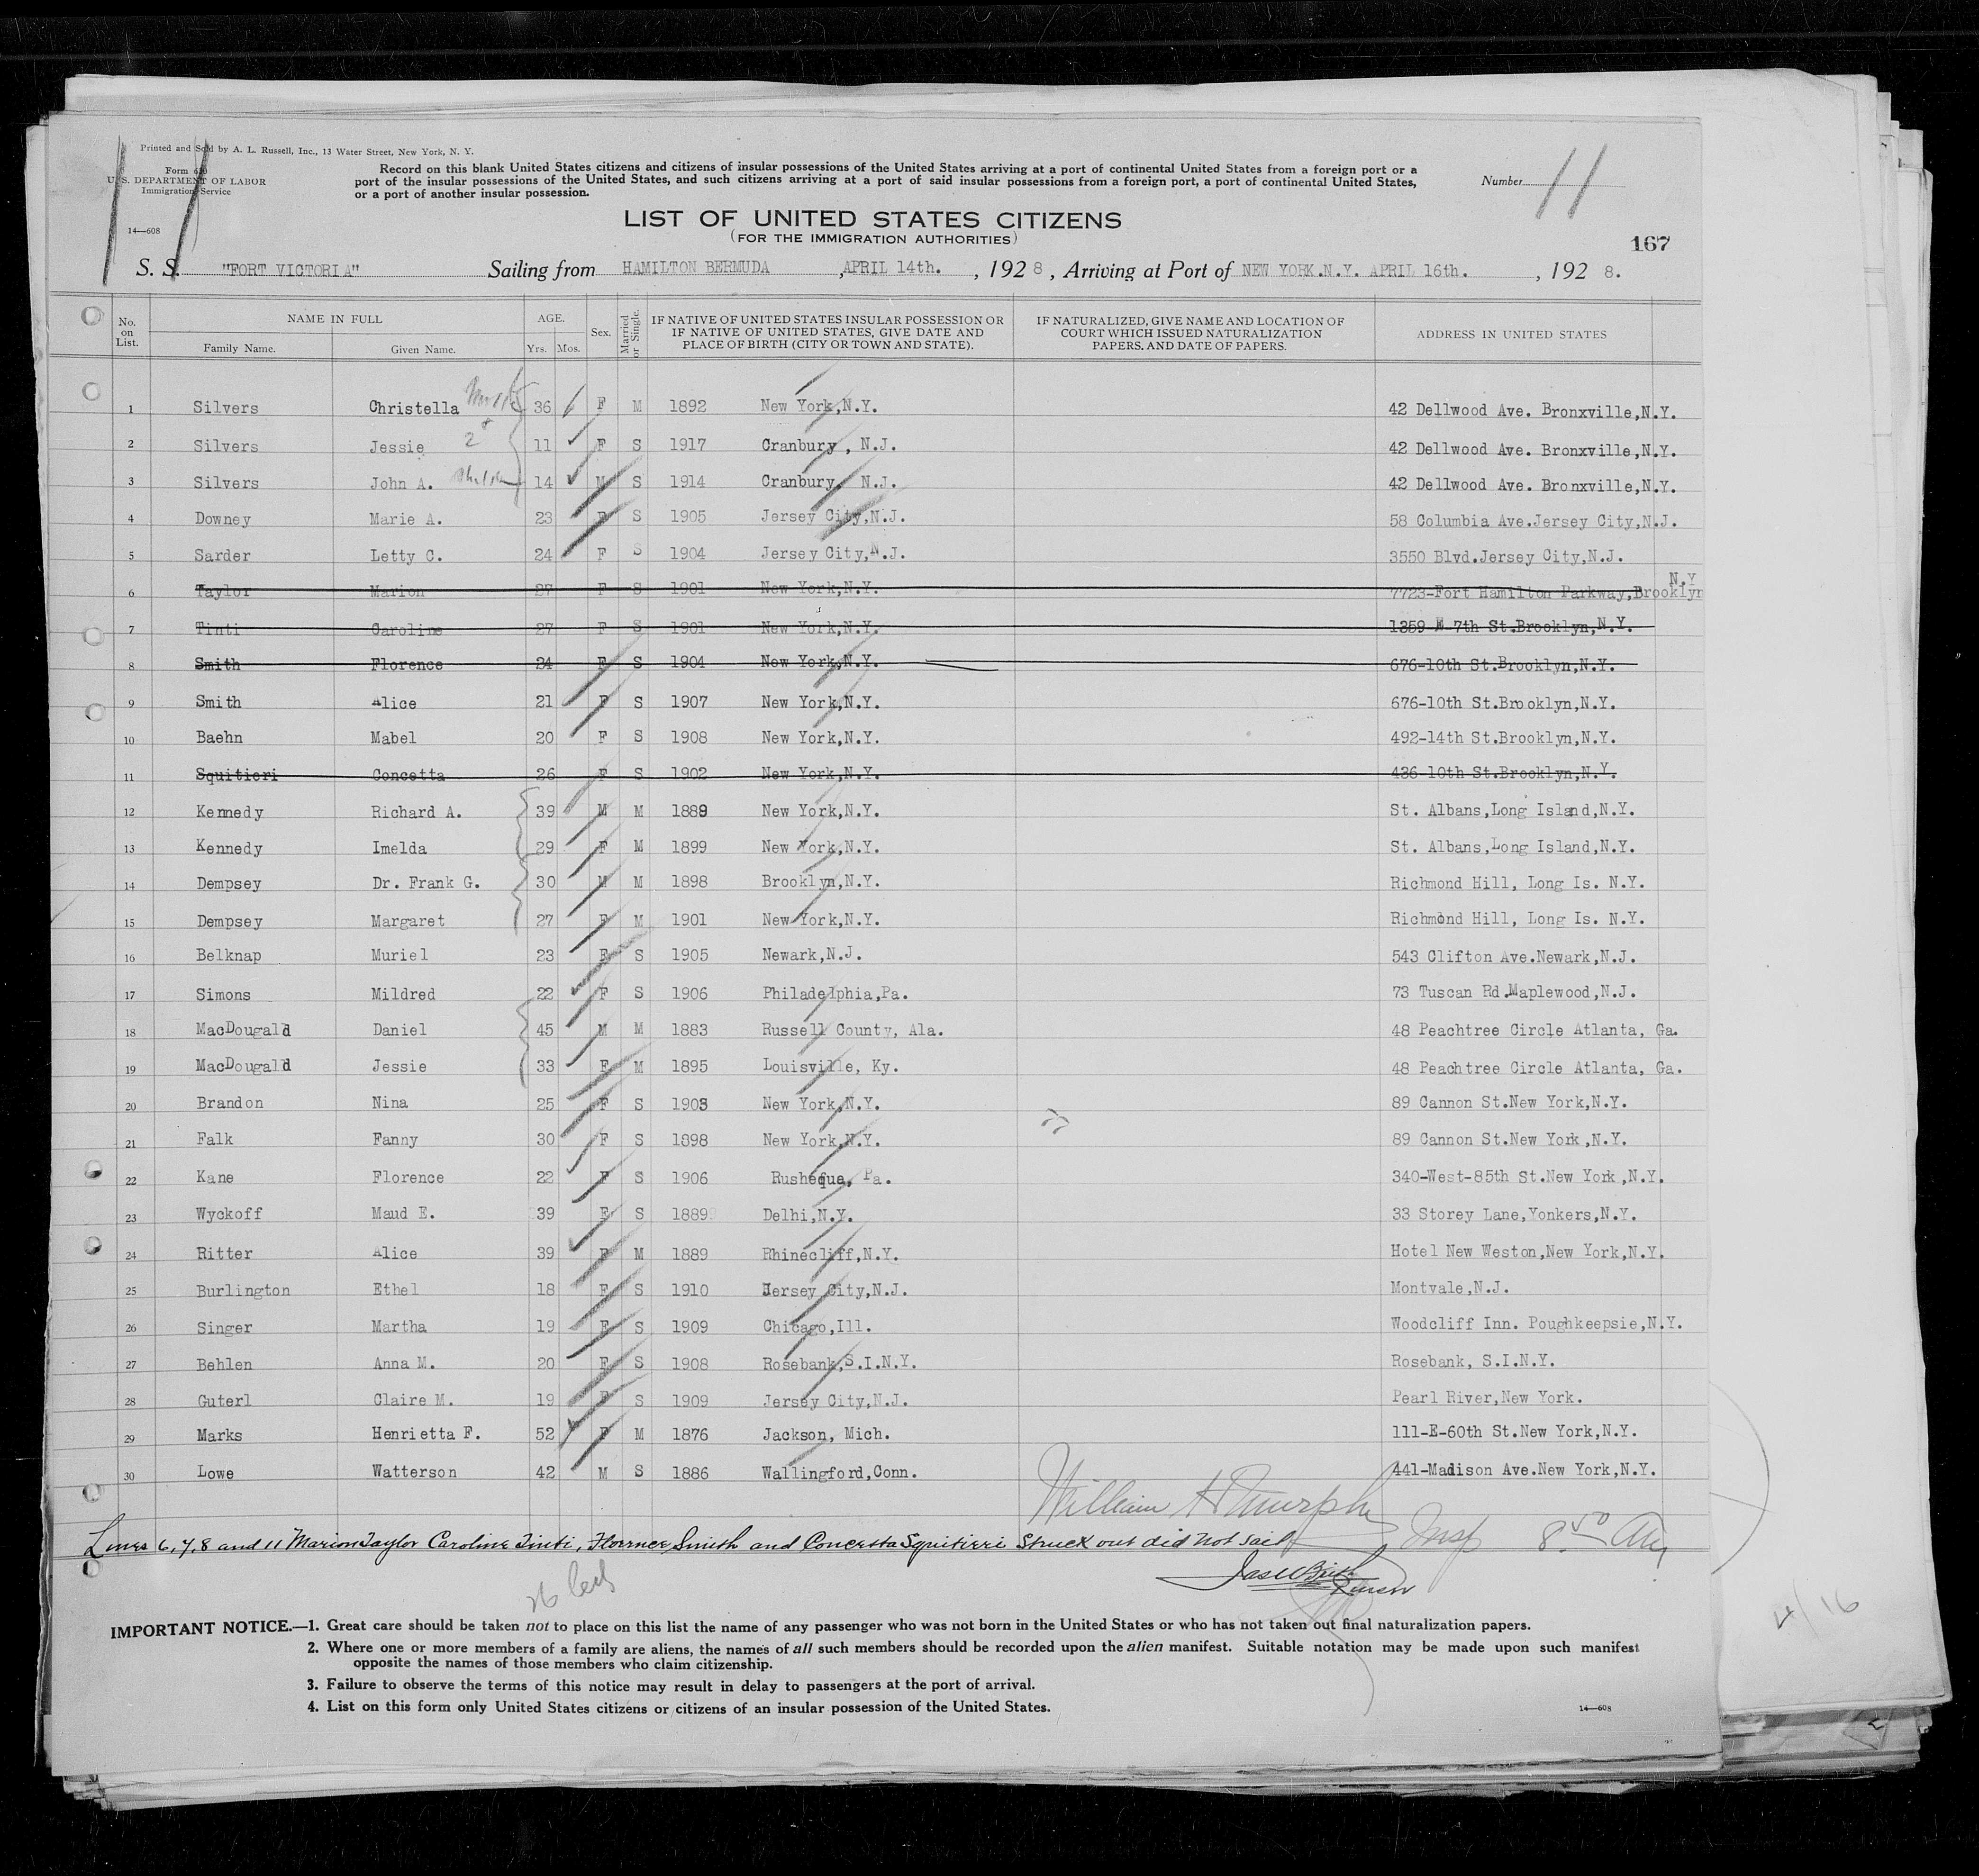 Printed and Sold by A. L. Russell, Inc., 13 Water Street, New York, N. Y.
Form 630
U. S. DEPARTMENT OF LABOR
Immigration Service
14—608
Record on this blank United States citizens and citizens of insular possessions of the United States arriving at a port of continental United States from a foreign port or a
port of the insular possessions of the United States, and such citizens arriving at a port of said insular possessions from a foreign port, a port of continental United States,
or a port of another insular possession.
Number 11
LIST OF UNITED STATES CITIZENS
(FOR THE IMMIGRATION AUTHORITIES)
167
S. S. "FORT VICTORIA" Sailing from HAMILTON BERMUDA ,APRIL 14th. , 1928 , Arriving at Port of NEW YORK.N.Y. APRIL 16th. , 192 8.
No. on List. NAME IN FULL Family Name. Given Name. AGE. Yrs. Mos. Sex. Married or Single. IF NATIVE OF UNITED STATES INSULAR POSSESSION OR IF NATIVE OF UNITED STATES, GIVE DATE AND PLACE OF BIRTH (CITY OR TOWN AND STATE). IF NATURALIZED, GIVE NAME AND LOCATION OF COURT WHICH ISSUED NATURALIZATION PAPERS, AND DATE OF PAPERS. ADDRESS IN UNITED STATES
1 Silvers Christella 36 F M 1892 New York,N.Y. 42 Dellwood Ave. Bronxville,N.Y.
2 Silvers Jessie 2 11 F S 1917 Cranbury, N.J. 42 Dellwood Ave. Bronxville,N.Y.
3 Silvers John A. 14 M S 1914 Cranbury, N.J. 42 Dellwood Ave. Bronxville,N.Y.
4 Downey Marie A. 23 F S 1905 Jersey City,N.J. 58 Columbia Ave.Jersey City,N.J.
5 Sarder Letty C. 24 F S 1904 Jersey City,N.J. 3550 Blvd.Jersey City,N.J.
6 Taylor Marion 27 F S 1901 New York,N.Y. 7723-Fort Hamilton Parkway,Brooklyn N.Y
7 Tinti Caroline 27 F S 1901 New York,N.Y. 1359 E-7th St.Brooklyn,N.Y.
8 Smith Florence 24 F S 1904 New York,N.Y. 676-10th St.Brooklyn,N.Y.
9 Smith Alice 21 F S 1907 New York,N.Y. 676-10th St.Brooklyn,N.Y.
10 Baehn Mabel 20 F S 1908 New York,N.Y. 492-14th St.Brooklyn,N.Y.
11 Squitieri Concetta 26 F S 1902 New York,N.Y. 436-10th St.Brooklyn,N.Y.
12 Kennedy Richard A. 39 M M 1889 New York,N.Y. St. Albans,Long Island,N.Y.
13 Kennedy Imelda 29 F M 1899 New York,N.Y. St. Albans,Long Island,N.Y.
14 Dempsey Dr. Frank G. 30 M M 1898 Brooklyn,N.Y. Richmond Hill, Long Is. N.Y.
15 Dempsey Margaret 27 F M 1901 New York,N.Y. Richmond Hill, Long Is. N.Y.
16 Belknap Muriel 23 F S 1905 Newark,N.J. 543 Clifton Ave.Newark,N.J.
17 Simons Mildred 22 F S 1906 Philadelphia,Pa. 73 Tuscan Rd.Maplewood,N.J.
18 MacDougald Daniel 45 M M 1883 Russell County, Ala. 48 Peachtree Circle Atlanta, Ga.
19 MacDougald Jessie 33 F M 1895 Louisville, Ky. 48 Peachtree Circle Atlanta, Ga.
20 Brandon Nina 25 F S 1903 New York,N.Y. 89 Cannon St.New York,N.Y.
21 Falk Fanny 30 F S 1898 New York,N.Y. 89 Cannon St.New York,N.Y.
22 Kane Florence 22 F S 1906 Rushequa, Pa. 340-West-85th St.New York,N.Y.
23 Wyckoff Maud E. 39 F S 1889 Delhi,N.Y. 33 Storey Lane,Yonkers,N.Y.
24 Ritter Alice 39 F M 1889 Rhinecliff,N.Y. Hotel New Weston,New York,N.Y.
25 Burlington Ethel 18 F S 1910 Jersey City,N.J. Montvale,N.J.
26 Singer Martha 19 F S 1909 Chicago,Ill. Woodcliff Inn. Poughkeepsie,N.Y.
27 Behlen Anna M. 20 F S 1908 Rosebank,S.I.N.Y. Rosebank, S.I.N.Y.
28 Guterl Claire M. 19 F S 1909 Jersey City,N.J. Pearl River,New York.
29 Marks Henrietta F. 52 F M 1876 Jackson, Mich. 111-E-60th St.New York,N.Y.
30 Lowe Watterson 42 M S 1886 Wallingford,Conn. 441-Madison Ave.New York,N.Y.
William H Murphy Insp 8 50 AM
Lines 6, 7, 8 and 11 Marion Taylor Caroline Tinti, Florence Smith and Concetta Squitieri Struck out did not sail
Purser
26
4/16
IMPORTANT NOTICE.—1. Great care should be taken not to place on this list the name of any passenger who was not born in the United States or who has not taken out final naturalization papers.
2. Where one or more members of a family are aliens, the names of all such members should be recorded upon the alien manifest. Suitable notation may be made upon such manifest
opposite the names of those members who claim citizenship.
3. Failure to observe the terms of this notice may result in delay to passengers at the port of arrival.
4. List on this form only United States citizens or citizens of an insular possession of the United States.
14—608